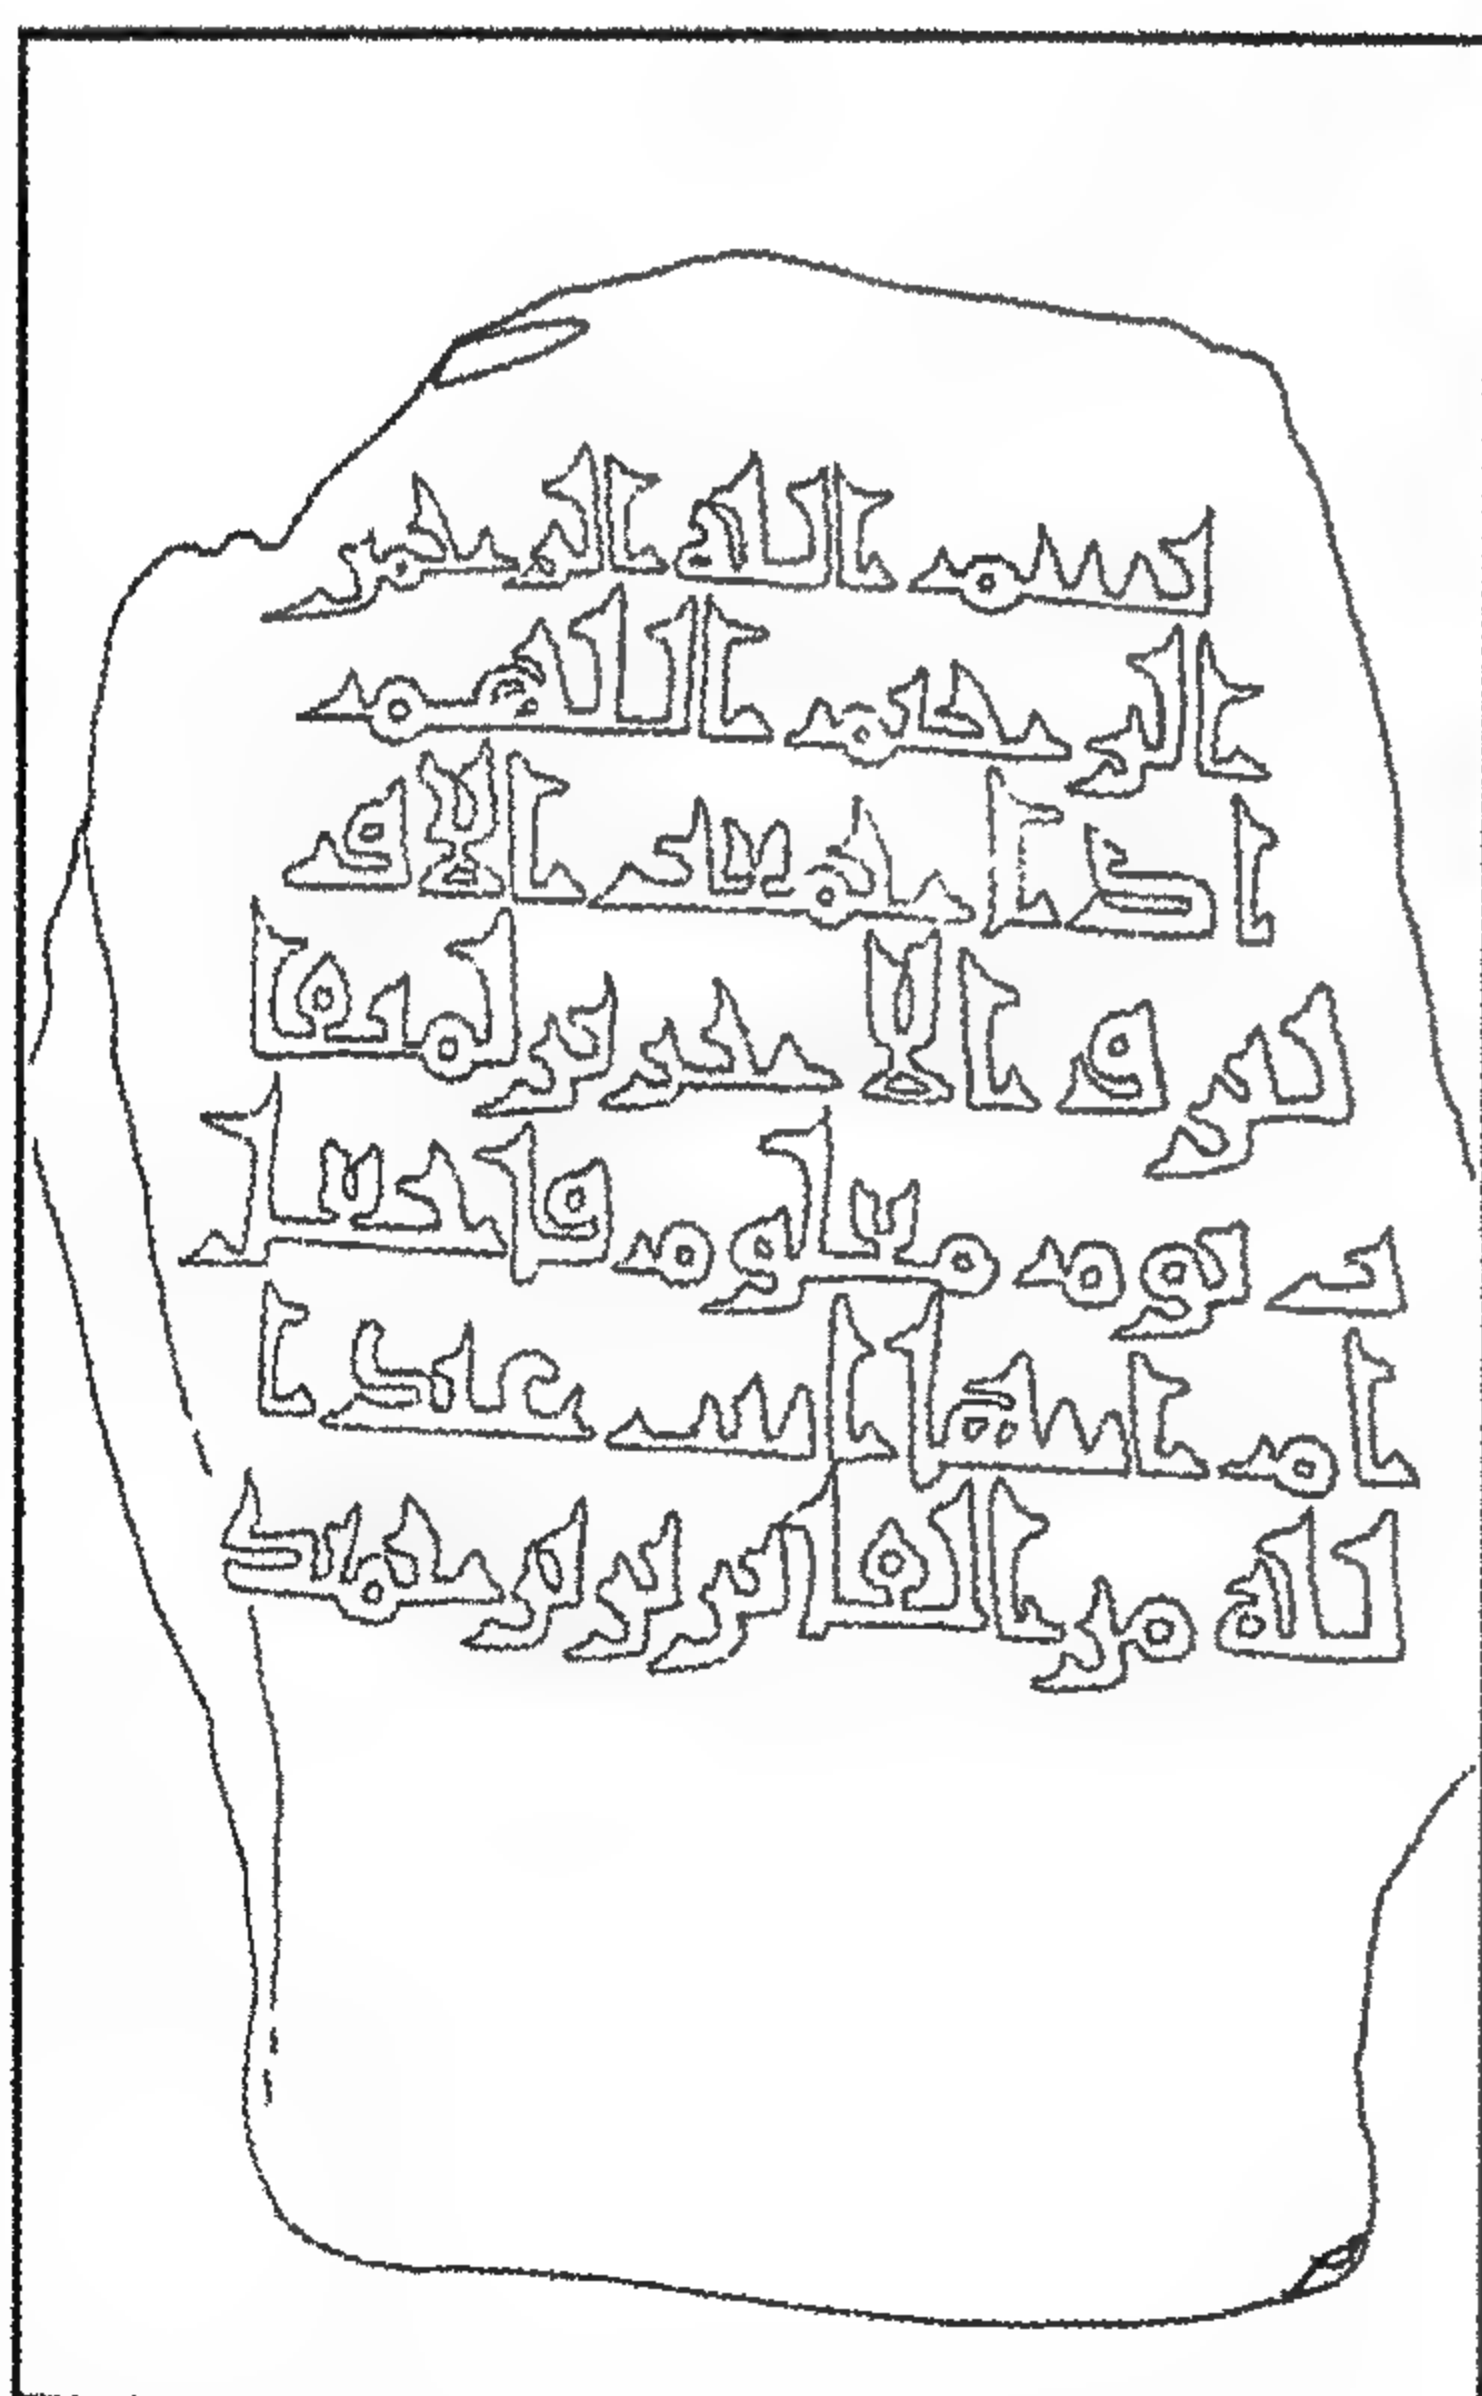 بسم الله الرحمن
الرحيم اللهم
اذا جمعت الاو
لين و الاخرين لميقا
ت يوم معلوم فاجعل
ام ابنت عبد ا
لله من الفايزين برحمتك